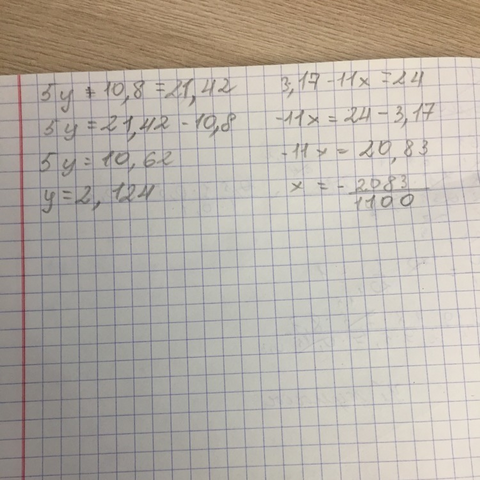 5y + 10,8 = 21,42
5y = 21,42 - 10,8
5y = 10,62
y = 2,124
3,17 - 11x = 24
-11x = 24 - 3,17
-11x = 20,83
x = - 2083/1100